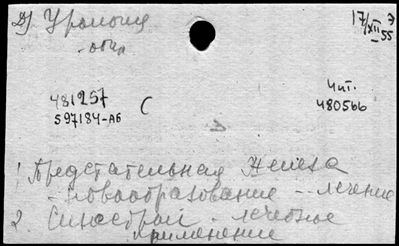 Д/ Урология 17/XII-55 Э
- общ
481257 С Чит.
597184-Аб 480566
1. Предстательная железа
- Новообразование - лечение
2. Синэстрол - лечебное
применение